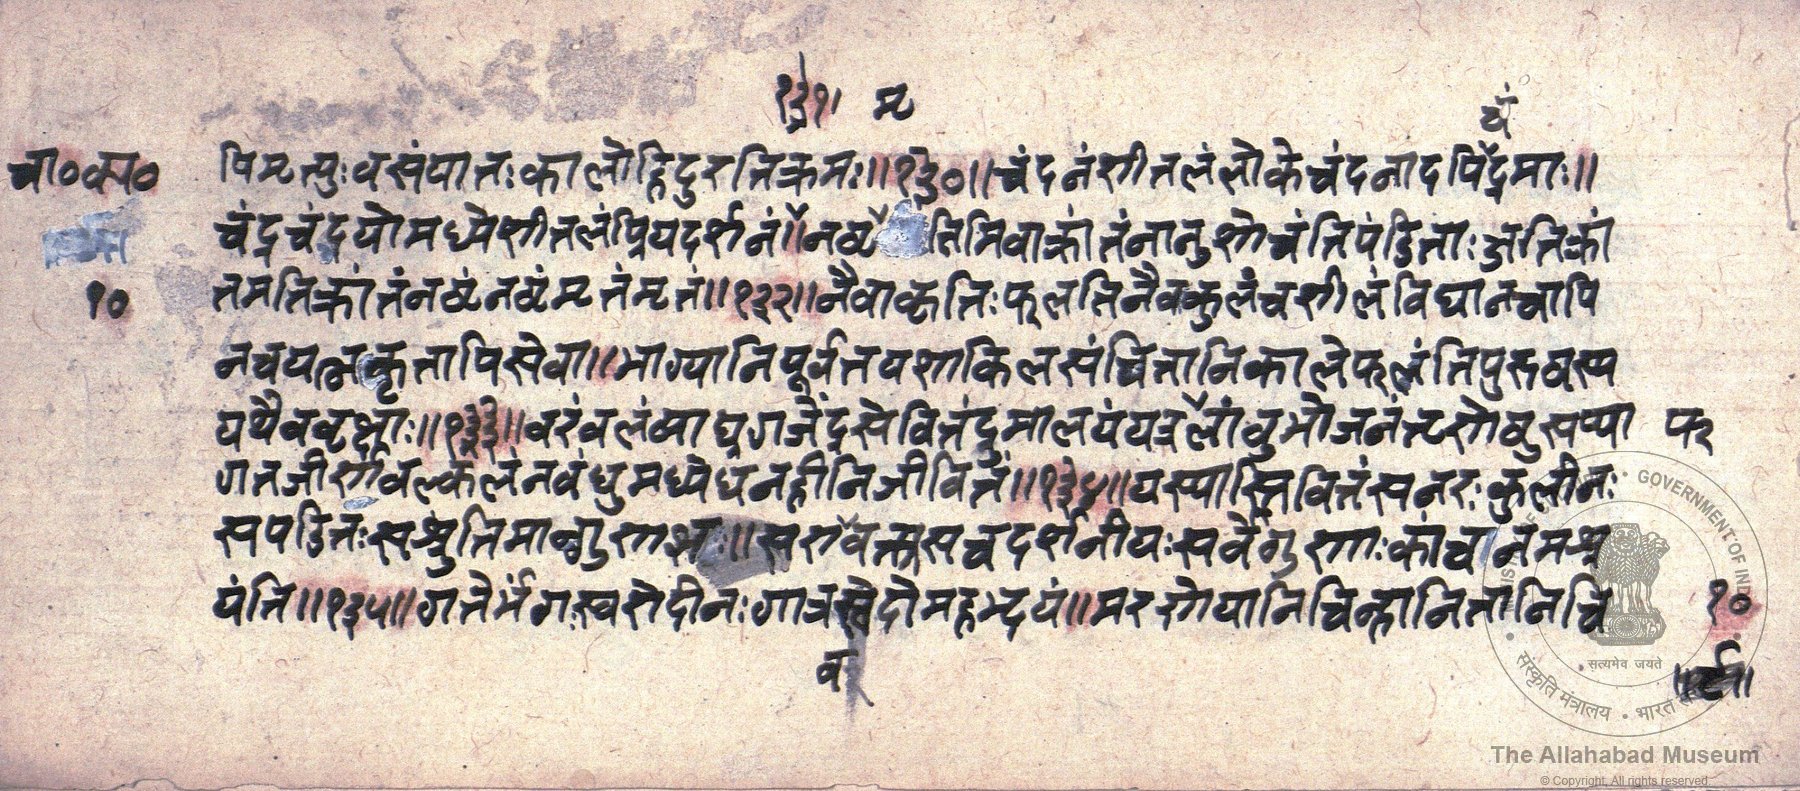 १३१। म्
चं
चा०का०
पिमृत्युःवसंयातःकालोहिदुरतिक्रमः॥१३०॥चंदनंशीतलंलोकेचंदनादपिचंद्रमाः॥
चंद्रचंदयोमध्येशीतलंप्रियदर्शनं॥नष्टं तिमिवाक्रांतंनानुशोचंतिपंडिताःअतिक्रां
१०
तमतिक्रांतंनष्टंनष्टंमृतंमृतं॥१३२॥नैवाकृतिःफलतिनैवकुलंचशीलंविद्यानचापि
नचयत्नकृतापिसेवा॥भाग्यानिपूर्वतपशाकिलसंचितानिकालेफलंतिपुरुषस्य
यथैववृक्षाः॥१३३॥वरंवलंव्याघ्रगजेंद्रसेवितंद्रुमालयंयत्रलांवुभोजनंतृणेषुसय्या
गतजीर्णवल्कलंनवंधुमध्येधनहीनिजीवितं॥१३४॥यस्यास्तिवित्तंसनरःकुलीनः
सपडितःसश्रुतिमान्गुणज्ञः॥सएवक्तासचदर्शनीयःसर्वेगुणाःकांचनमश्र
यंति॥१३५॥गतेर्मंगःस्वरोदीनःगात्रस्वेदोमहद्भयं॥मरणेयानिचिन्हानितानिचि
१०
व
GOVERNMENT OF INDIA
सत्यमेव जयते
संस्कृति मंत्रालय • भारत
The Allahabad Museum
© Copyright, All rights reserved